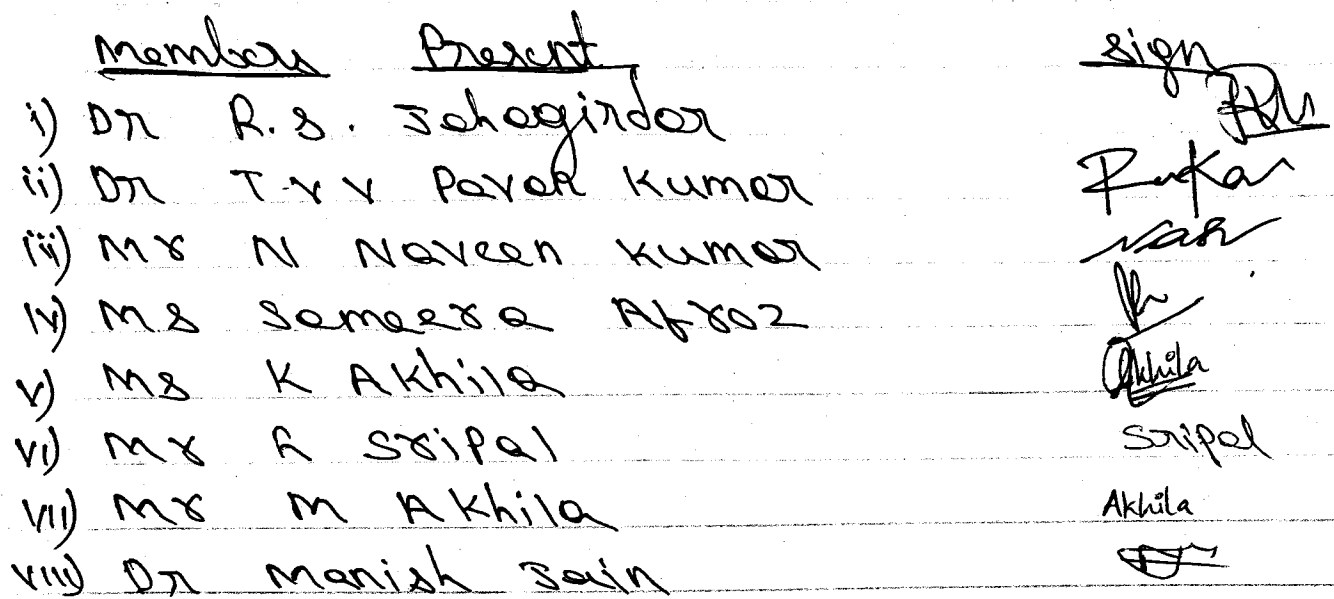 Members Present sign
i) Dr R.S. Jahagirdar
ii) Dr T.V V Pavan Kumar
iii) Mr N Naveen Kumar
iv) Ms Sameera Afroz
v) Ms K Akhila Akhila
vi) Mr R Sripal Sripal
vii) Mr M Akhila Akhila
viii) Dr Manish Jain